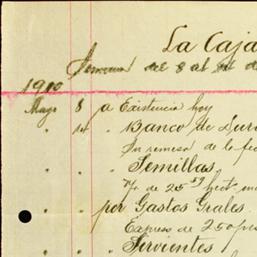 La Caja
Semana del 8 al 14 de
1910
Mayo 8 a Existencia hoy
" 14 " Banco de Dura
Su remesa de la fec
" " " Semillas
de 25
" " por Gastos Grales.
Expreso de 250 pes
" " " Sirvientes